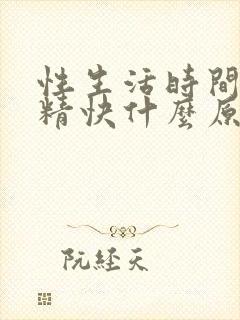 性生活時間
精快什麼原
阮經天